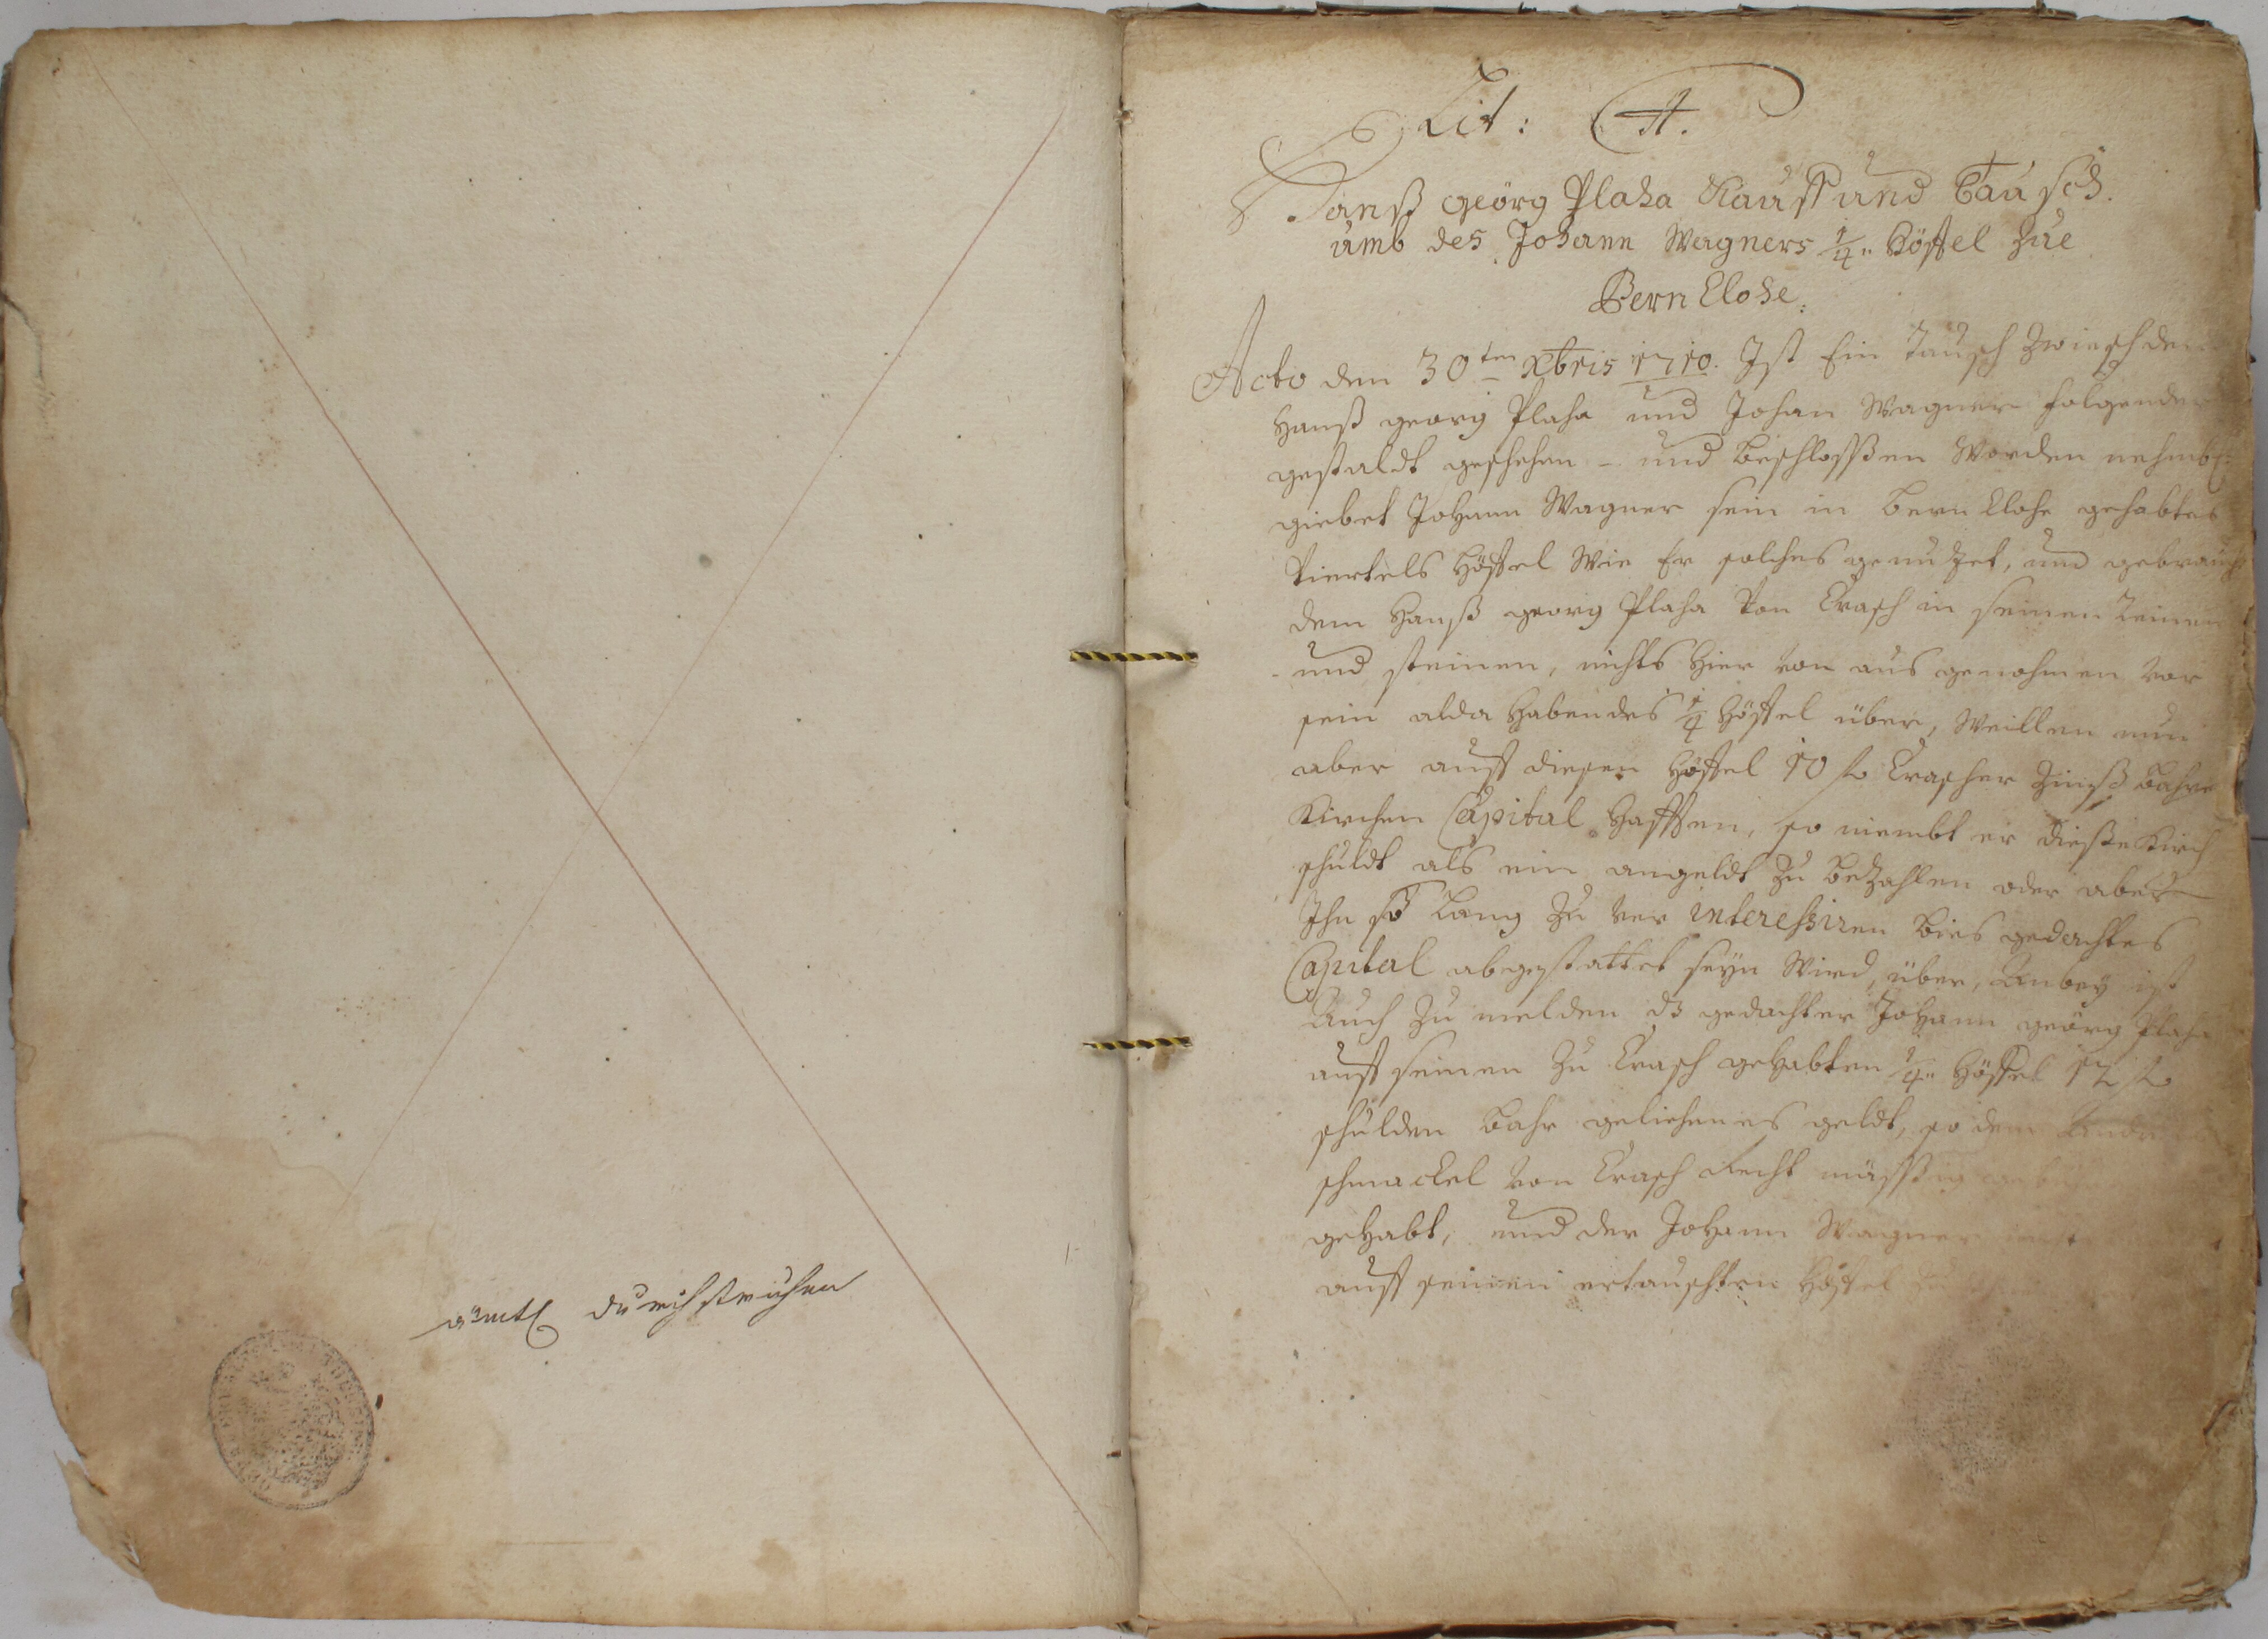 ambtl durchstrichen
Lit: A.
Hanß geörg Plaha Kauff und Tausch.
umb des Johann Wagners 1/4 Höffel zue
Bern Clohe:
Acto den 30ten Xbris 1710. Ist Ein Tausch Zwieschden
Hanß georg Plaha und Johan Wagner folgender
gestaldt geschehen - und beschlossßen Worden nehmbl:
giebet Johann Wagner sein in Bern Clohe gehabtes
Viertels Höffel Wie Er solches genutzet, und gebrauch
dem Hanß georg Plaha Von Crasch in seinen Reinen
und steinen, nichts hier von aus genohmen vor
sein alda habendes 1/4 Höffel über, Weillen nun
aber auff diesen Höffel 10 fl Crascher Zinß bahre
Kirchen Capital hafften, so niembt er dieße Kirch
schuldt als ein angeldt zu bezahlen oder aber
Ihn so lang zu ver interessiren bies gedachtes
Capital abgestattet seyn Wird, über, Anbey ist
Auch zu melden dz gedachter Johann geörg Plaha
auff seinen zu Crasch gehabten 1/4 Höffel 12 fl
schulden bahr geliehenes geldt, so dem
schmackel von Crasch Recht mässßig
gehabt, und der Johann Wagner
auff seinen ertauschten Höffel